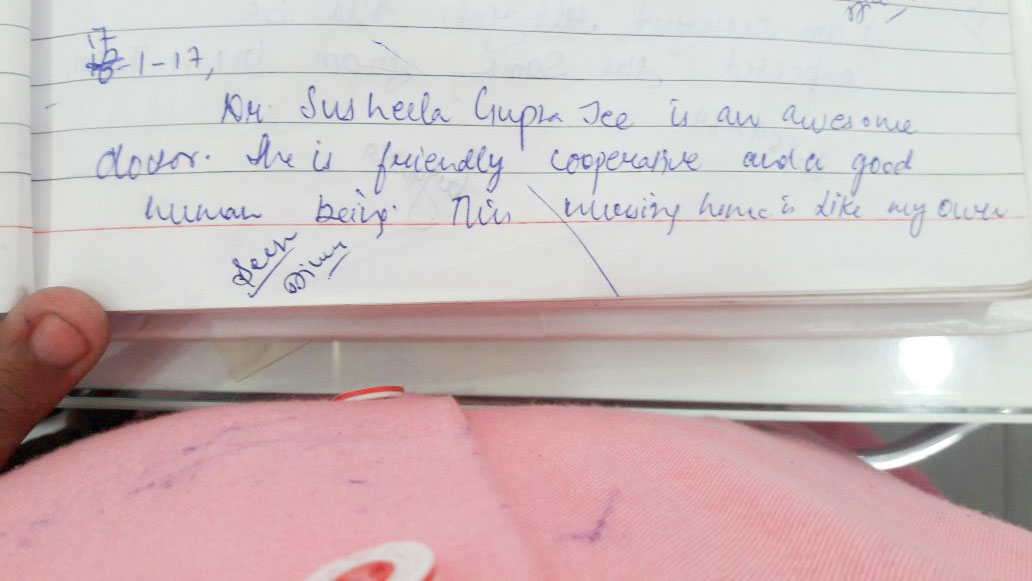 17-1-17,
Dr. Susheela Gupta Jee is an awesome
doctor. She is friendly cooperative and a good
human being. This nursing home is like my own